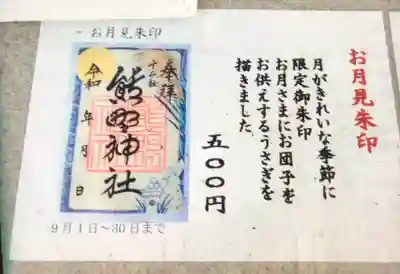 お月見朱印
月がきれいな季節に
限定御朱印
お月さまにお団子を
お供えするうさぎを
描きました
五〇〇円
- お月見朱印
奉拝
十二社
熊野神社
令和 年 月 日
9月1日~30日まで